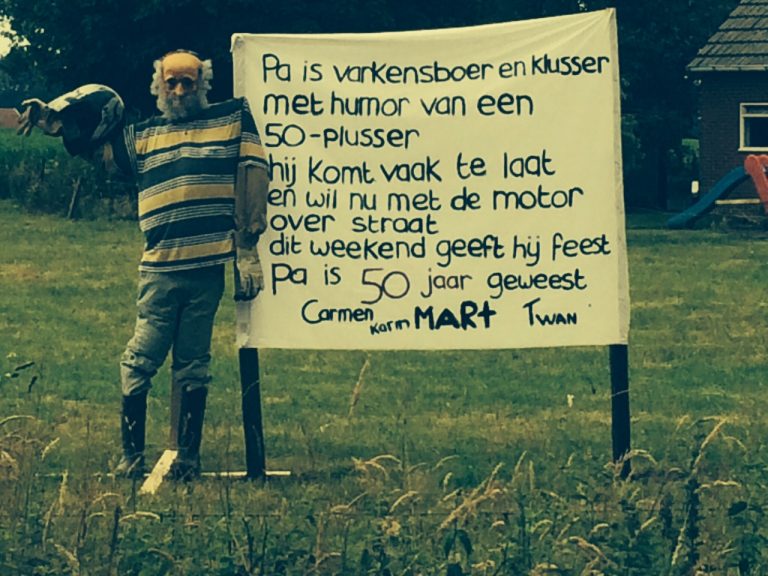 Pa is varkensboer en klusser
met humor van een
50-plusser
hij komt vaak te laat
en wil nu met de motor
over straat
dit weekend geeft hij feest
Pa is 50 jaar geweest
Carmen Karin MARt TWAN